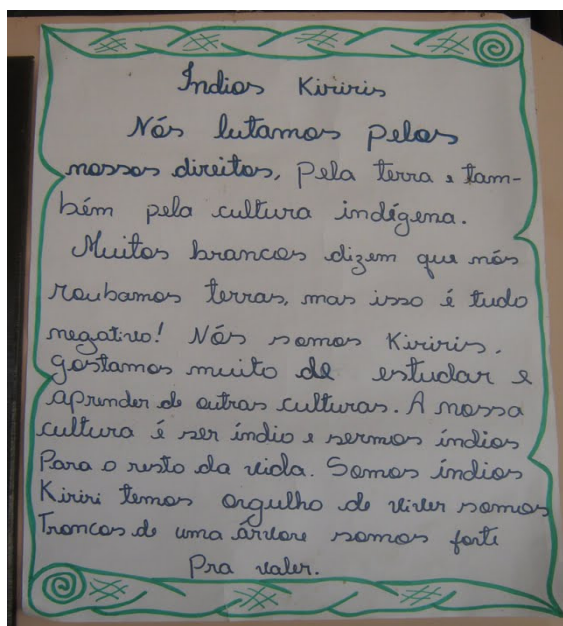 Índios Kiriris
Nós lutamos pelos
nossos direitos, pela terra e tam-
bém pela cultura indígena.
Muitos brancos dizem que nós
roubamos terras, mas isso é tudo
negativo! Nós somos Kiriris,
gostamos muito de estudar e
aprender de outras culturas. A nossa
cultura é ser índio e sermos índios
Para o resto da vida. Somos índios
Kiriri temos orgulho de viver somos
Troncos de uma árvore somos forte
Pra valer.